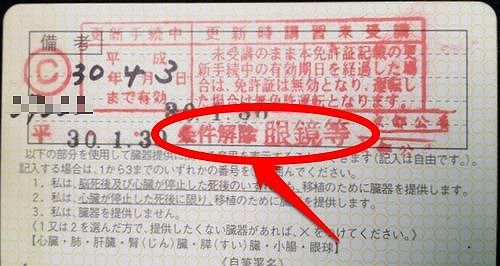 備考
更新手続中
Ⓒ 平成
30 4 3
年 月 日
まで有効
更新時講習未受講
未受講のまま本免許証記載の更
新手続中の有効期日を経過した場
合は、免許は無効となり、運転し
た場合は無免許運転となります。
30.1.30
平 30.1.30 条件解除 眼鏡等
以下の部分を使用して臓器提供に
(記入は自由です。)
記入する場合は、1から3までのいずれかの番号を
んでください。
1. 私は、脳死後及び心臓が停止した死後のいずれでも、移植のために臓器を提供します。
2. 私は、心臓が停止した死後に限り、移植のために臓器を提供します。
3. 私は、臓器を提供しません。
(1又は2を選んだ方で、提供したくない臓器があれば、×をつけてください。)
【心臓・肺・肝臓・腎(じん)臓・膵(すい)臓・小腸・眼球】
《自筆署名》